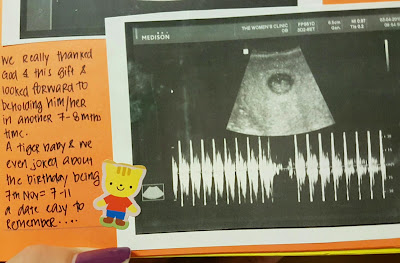 We really thanked
God 4 this gift &
looked forward to
beholding him/her
in another 7-8 mths
time.
A tiger baby & we
even joked about
the birthday being
7th Nov = 7-11
a date easy to
remember....
MEDISON
THE WOMEN'S CLINIC
OB